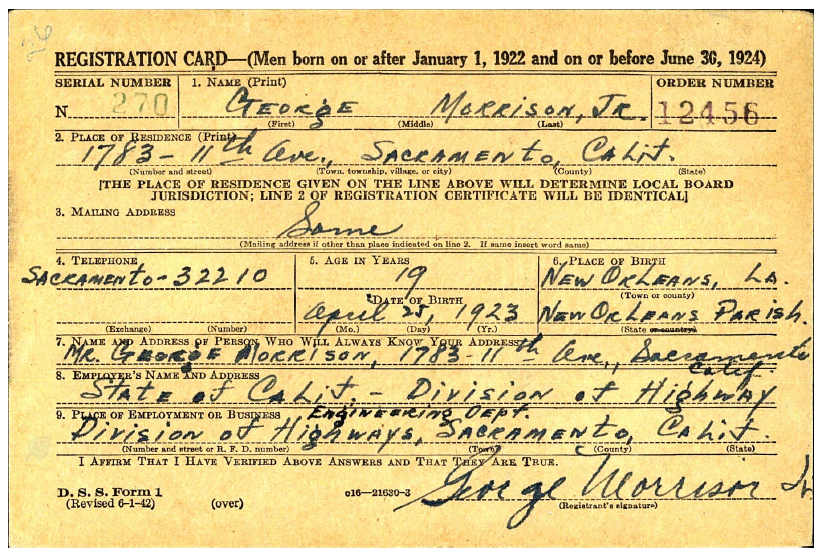 REGISTRATION CARD—(Men born on or after January 1, 1922 and on or before June 30, 1924)
SERIAL NUMBER 1. NAME (Print) ORDER NUMBER
N 270 GEORGE MORRISON, JR. 12456
(First) (Middle) (Last)
2. PLACE OF RESIDENCE (Print)
1783 - 11th Ave., SACRAMENTO, CALIF.
(Number and street) (Town, township, village, or city) (County) (State)
[THE PLACE OF RESIDENCE GIVEN ON THE LINE ABOVE WILL DETERMINE LOCAL BOARD
JURISDICTION; LINE 2 OF REGISTRATION CERTIFICATE WILL BE IDENTICAL]
3. MAILING ADDRESS
Same
(Mailing address if other than place indicated on line 2. If same insert word same)
4. TELEPHONE 5. AGE IN YEARS 6. PLACE OF BIRTH
SACRAMENTO - 32210 19 NEW ORLEANS, LA.
DATE OF BIRTH (Town or county)
April 25, 1923 NEW ORLEANS PARISH.
(Exchange) (Number) (Mo.) (Day) (Yr.) (State or county)
7. NAME AND ADDRESS OF PERSON WHO WILL ALWAYS KNOW YOUR ADDRESS
MR. GEORGE MORRISON, 1783 - 11th Ave., Sacramento
Calif.
8. EMPLOYER'S NAME AND ADDRESS
STATE of CALIF. - DIVISION of HIGHWAY
9. PLACE OF EMPLOYMENT OR BUSINESS ENGINEERING DEPT.
DIVISION of HIGHWAYS, SACRAMENTO, CALIF.
(Number and street or R. F. D. number) (Town) (County) (State)
I AFFIRM THAT I HAVE VERIFIED ABOVE ANSWERS AND THAT THEY ARE TRUE.
George Morrison Jr.
D. S. S. Form 1 o16—21630-3
(Revised 6-1-42) (over) (Registrant's signature)